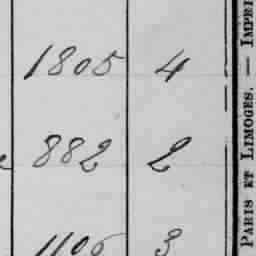 1805 4
882 2
1106 3
PARIS ET LIMOGES. — IMPRI